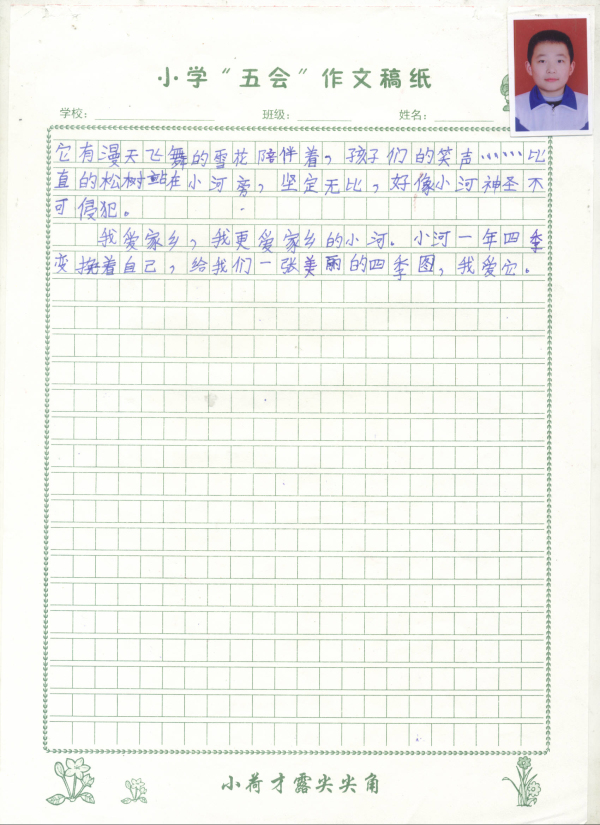 小学“五会”作文稿纸
学校： 班级： 姓名：
它有漫天飞舞的雪花陪伴着，孩子们的笑声……比
直的松树站在小河旁，坚定无比，好像小河神圣不
可侵犯。
我爱家乡，我更爱家乡的小河。小河一年四季
变换着自己，给我们一张美丽的四季图，我爱它。
小荷才露尖尖角